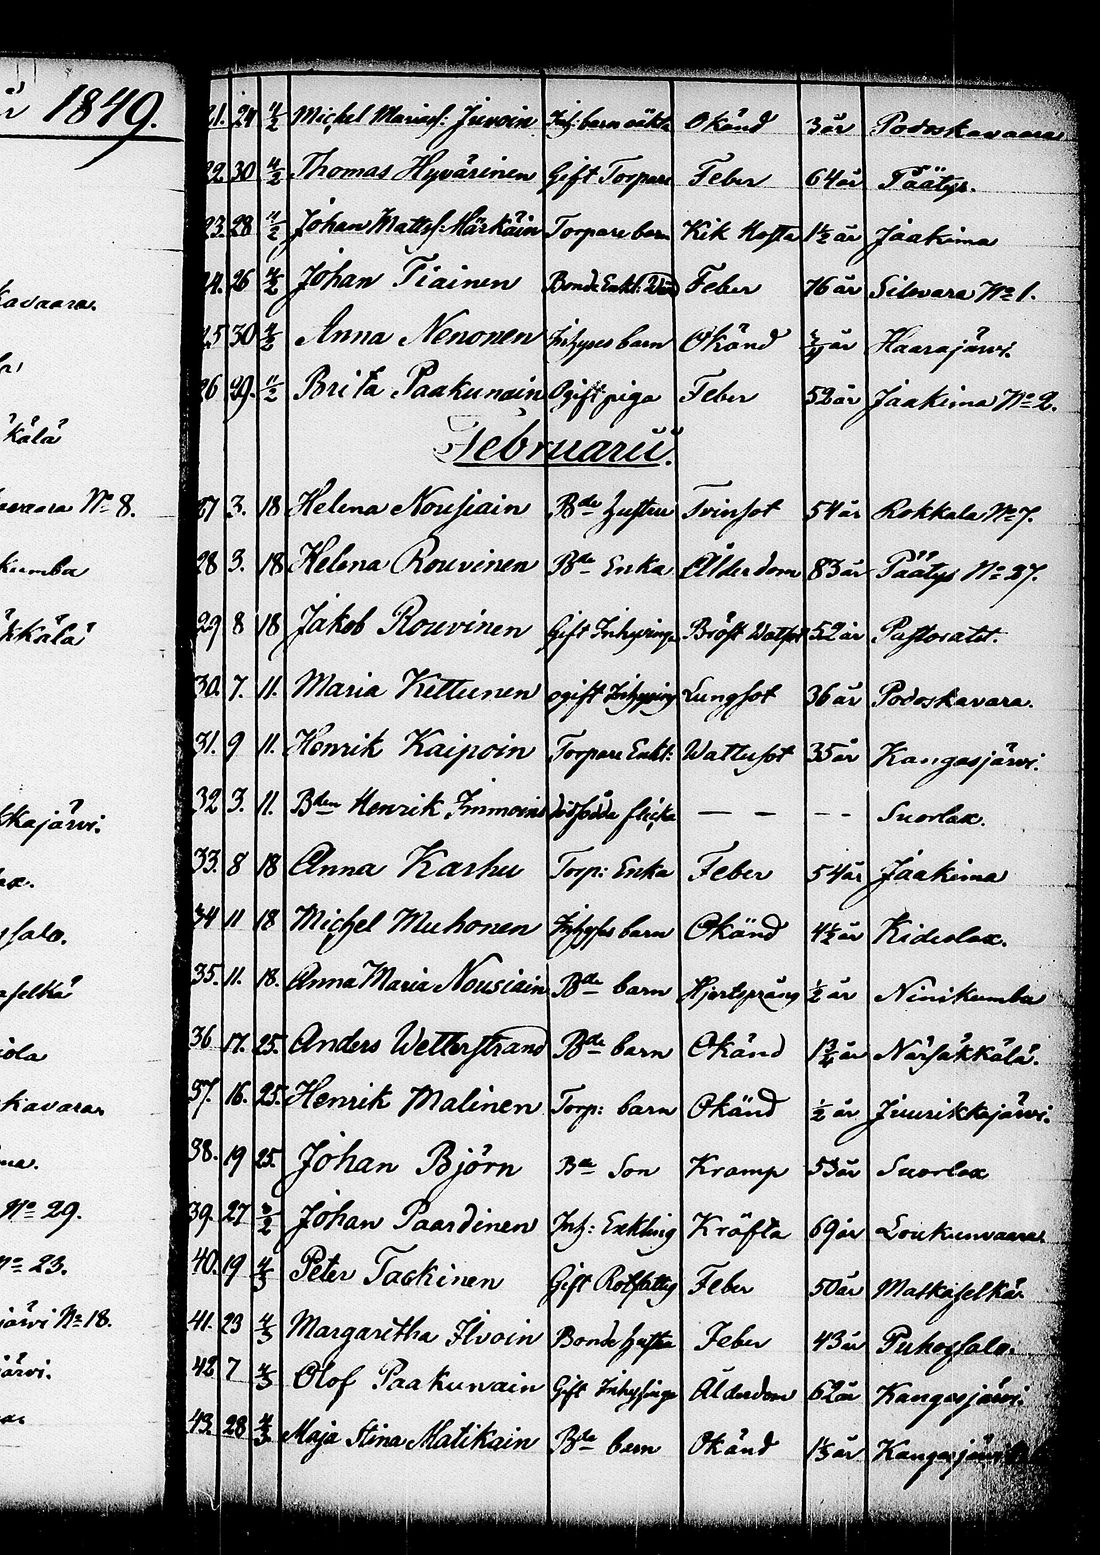 år 1849.
kavaara.
kälä
vaara No 8.
kumba
kkälä
kkajärvi.
ax.
salo.
aselkä
iola
kavara.
ma.
No 29.
No 23.
järvi No 18.
järvi.
21. 24 4/2 Michel Mariass: Juvoin Inh: barn oäkta Okänd 3 år Podoskavaara
22. 30 4/2 Thomas Hyvärinen Gift Torpare Feber 64 år Päätys.
23. 28 4/2 Johan Mattss: Härkäin Torpare barn Kik Hosta 1½ år Jaakima
24. 26 4/2 Johan Tiainen Bonde Enkl: Feber 76 år Silvvara No 1.
25 30 4/2 Anna Nenonen Inhyses barn Okänd år Haarajärvi.
26 29. 4/2 Brita Paakunain Ogift piga Feber 52 år Jaakima No 2.
Februarii.
27 3. 18 Helena Nousiain Bde hustru Tvinsot 54 år Rokkala No 7.
28 3. 18 Helena Rouvinen Bde Enka Ålderdom 83 år Päätys No 27.
29 8 18 Jakob Rouvinen Gift Inhysing Bröst Watsot 52 år Pastoratet.
30. 7. 11. Maria Kettunen ogift Inhysing Lungsot 36 år Podoskavara.
31. 9 11. Henrik Kaipoin Torpare Enkl: Wattusot 35 år Kangasjärvi.
32 3. 11. Bden Henrik Immoins dödfödde flicka — — - - Suorlax.
33. 8 18 Anna Karhu Torp: Enka Feber 54 år Jaakima
34 11 18 Michel Muhonen Inhyses barn Okänd 4½ år Kideslax.
35. 11. 18. Anna Maria Nousiain Bde barn Hjertspräng ½ år Niinikumba
36 17. 25. Anders Wetterstrand Bde barn Okänd 1¾ år Närsäkkälä.
37. 16. 25. Henrik Malinen Torp: barn Okänd ½ år Juurikkajärvi.
38. 19 25. Johan Björn Bde Son Kramp 53 år Suorlax
39. 27 3/2 Johan Paardinen Inh: Enkling Kräfta 69 år Loukunvaara
40. 19 4/3 Peter Tackinen Gift Rotfattig Feber 50 år Matkaselkä
41. 23 4/3 Margaretha Ilvoin Bonde hustru Feber 43 år Puhossalo.
42 7 4/3 Olof Paakunain Gift Inhysinge Ålderdom 62 år Kangasjärvi.
43. 28 4/3 Maja Stina Matikain Bde barn Okänd år Kangasjärvi